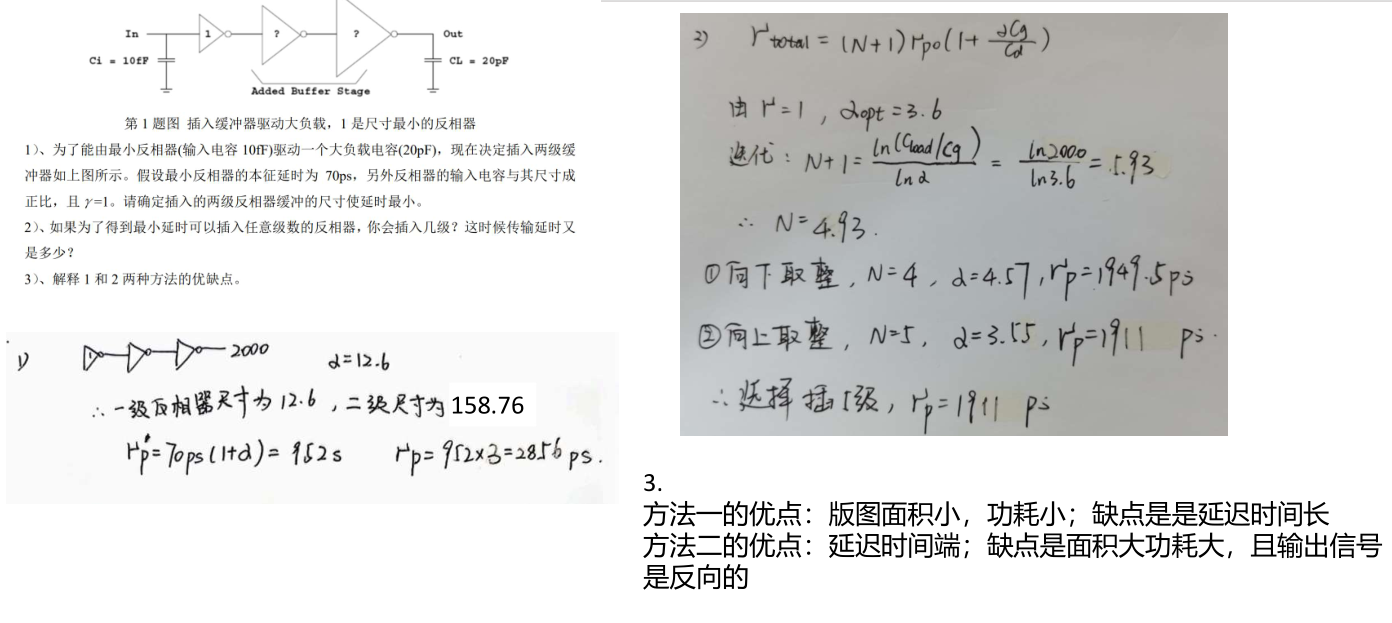 In
1
?
?
Out
Ci = 10fF
CL = 20pF
Added Buffer Stage
第 1 题图 插入缓冲器驱动大负载，1 是尺寸最小的反相器
1)、为了能由最小反相器(输入电容 10fF)驱动一个大负载电容(20pF)，现在决定插入两级缓
冲器如上图所示。假设最小反相器的本征延时为 70ps，另外反相器的输入电容与其尺寸成
正比，且 γ=1。请确定插入的两级反相器缓冲的尺寸使延时最小。
2)、如果为了得到最小延时可以插入任意级数的反相器，你会插入几级？这时候传输延时又
是多少？
3)、解释 1 和 2 两种方法的优缺点。
1) 1 2000 α=12.6
∴一级反相器尺寸为 12.6，二级尺寸为 158.76
rp=70ps(1+α)=952s rp=952×3=2856 ps.
2) rtotal = (N+1)rpo(1+ αCg/Cd)
由 r=1，αopt=3.6
迭代：N+1= ln(Cload/Cg)/lnα = ln2000/ln3.6 = 5.93
∴ N=4.93.
①向下取整，N=4，α=4.57，rp=1949.5ps
②向上取整，N=5，α=3.55，rp=1911 ps.
∴选择插5级，rp=1911 ps
3.
方法一的优点：版图面积小，功耗小；缺点是是延迟时间长
方法二的优点：延迟时间端；缺点是面积大功耗大，且输出信号
是反向的